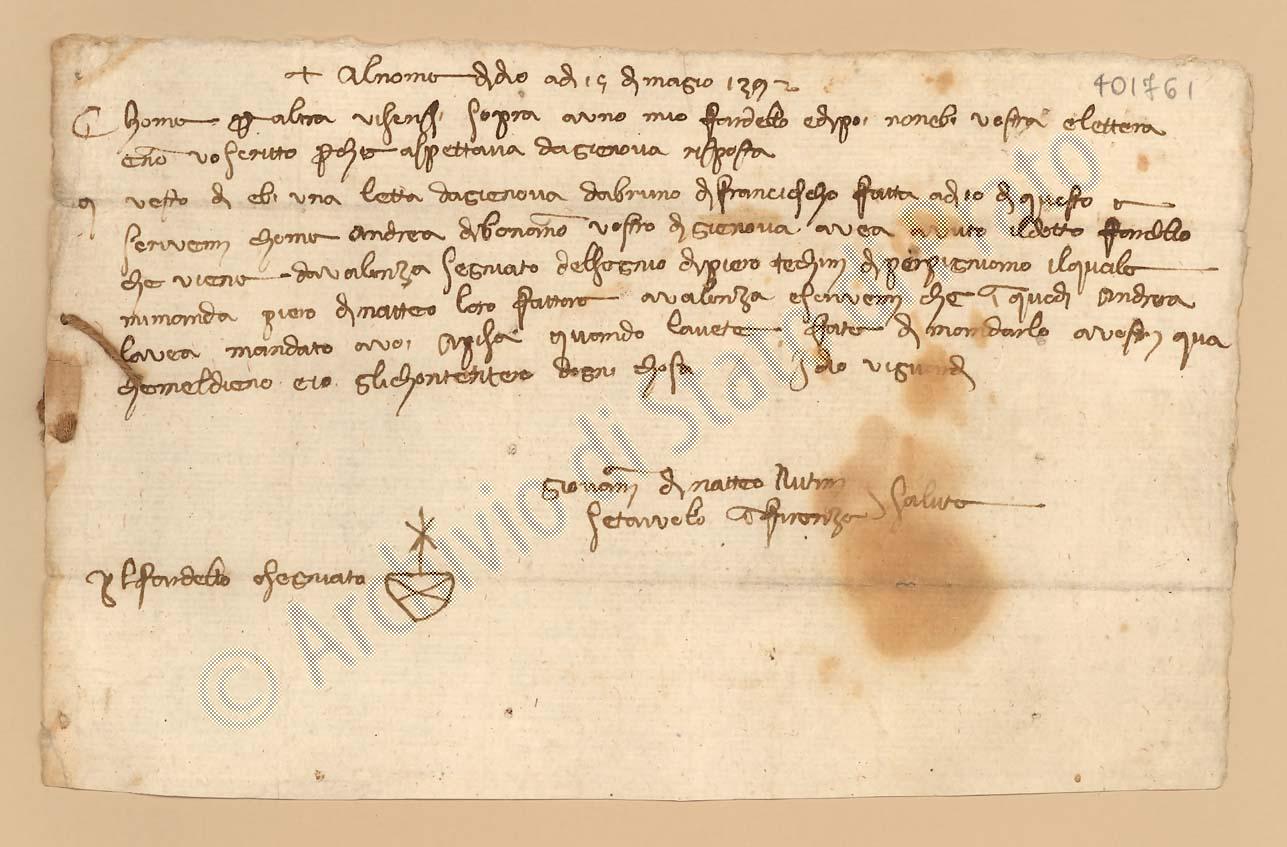 + Al nome di dio adi 15 di magio 1392
401761
Chome per altra vi scrissi sopra avuno mio fardello e dipoi nonebi vostra lettera
e nō vo scritto perche aspettava da gienova risposta
Questo di ebi una letta da gienova da bruno di franciescho fatta adi 10 di questo e
scrivemi chome Andrea di bonano vostro di gienova avea avuto il detto fardello
che viene da valenza segnato del segnio di piero techini di perpignano il quale
mi manda piero di matteo loro fattore a valenza e scrivemi che questo di Andrea
lavea mandato a voi a pisa quando lavete fate di mandarlo a vostri qua
che meldieno e io gli chontentero dogni chosa Idio vi guardi
Giovani di matteo
setaiuolo in firenze salute
per 1 fardello segnato
© Archivio di Stato di Prato